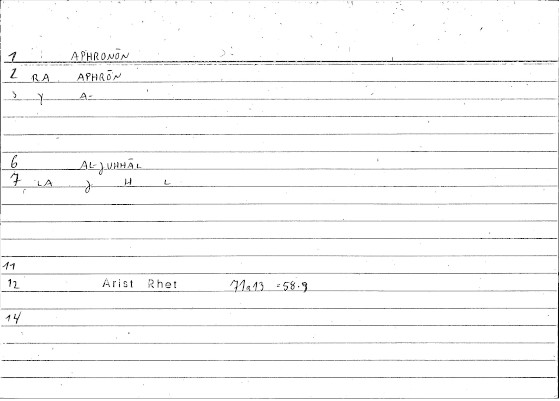 1 APHRONŌN
2 RA APHRŌN
3 y A-
6 AL-JUHHĀL
7 LA J H L
11
12 Arist Rhet 71a13 =58.9
14